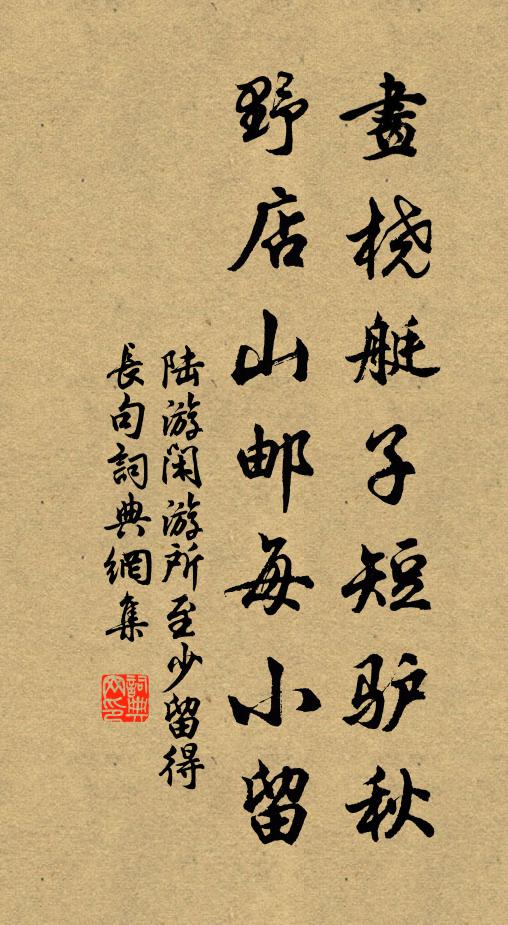 畫桡艇子短驴秋
野店山邮每小留
陆游闲游所至少留得
長句詞典網集